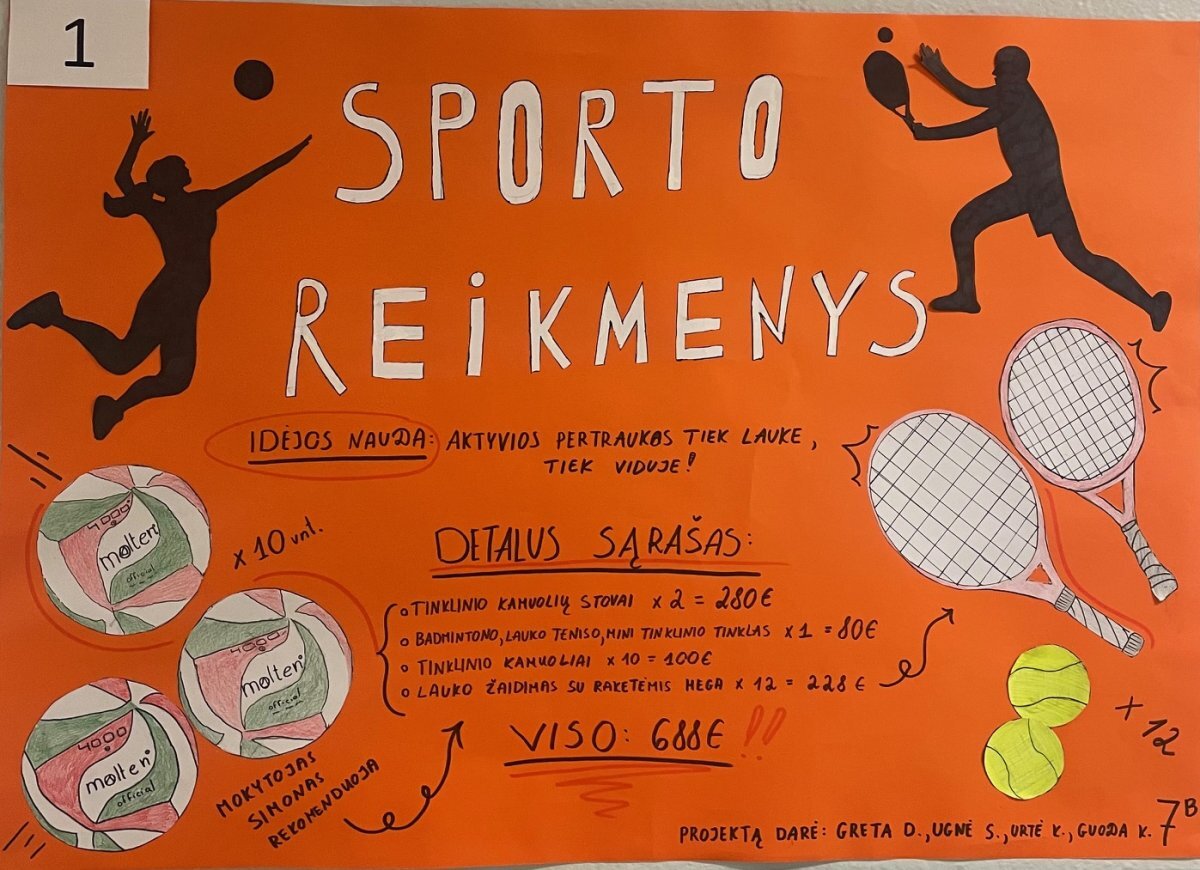 1
SPORTO
REIKMENYS
IDĖJOS NAUDA: AKTYVIOS PERTRAUKOS TIEK LAUKE,
TIEK VIDUJE!
4000
molten
official
x 10 vnt.
DETALUS SĄRAŠAS:
TINKLINIO KAMUOLIŲ STOVAI x 2 = 280€
BADMINTONO, LAUKO TENISO, MINI TINKLINIO TINKLAS x 1 = 80€
TINKLINIO KAMUOLIAI x 10 = 100€
LAUKO ŽAIDIMAS SU RAKETĖMIS MEGA x 12 = 228€
4000
molten
official
VISO: 688€!!
4000
molten
official
x 12
MOKYTOJAS
SIMONAS
REKOMENDUOJA
PROJEKTĄ DARĖ: GRETA D., UGNĖ S., URTĖ K., GUODA K. 7B